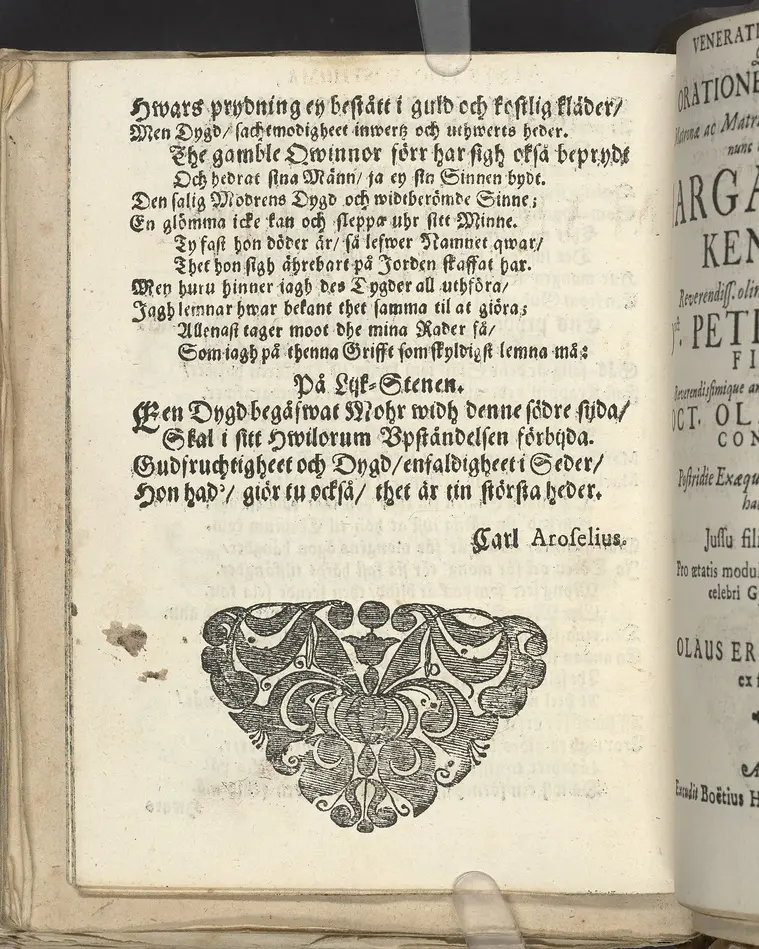 Hwars prydning ey bestått i guld och kostlig kläder/
Men Dygd/ sachtmodigheet inwertz och uthwerts heder.
The gamble Qwinnor förr har sigh också beprydt
Och hedrat sina Männ/ ja ey sin Sinnen bydt.
Den salig Modrens Dygd och widtberömde Sinne;
En glömma icke kan och sleppa uhr sitt Minne.
Ty fast hon döder är/ så lefwer Namnet qwar/
Thet hon sigh ährebart på Jorden skaffat har.
Men huru hinner iagh des Tygder all uthföra/
Jagh lemnar hwar bekant thet samma til at giöra;
Allenast tager moot dhe mina Rader få/
Som iagh på thenna Grifft som skyldigst lemna må:
På Lijk-Stenen.
Een Dygd begåfwat Mohr widh denne södre sijda/
Skal i sitt Hwilorum Vpståndelsen förbijda.
Gudfruchtigheet och Dygd/ enfaldigheet i Seder/
Hon had'/ giör tu också/ thet är tin största heder.
Carl Aroselius.
VENERATI
ORATIONE
Matronæ ac Matr
nunc
ARGA
KEN
Reverendiss. olim
PET
FI
Reverendissimique
OCT. OL
CON
Postridie Exæqu
Jussu fil
Pro ætatis modu
celebri G
OLAUS ER
ex
Excudit Boëtius H